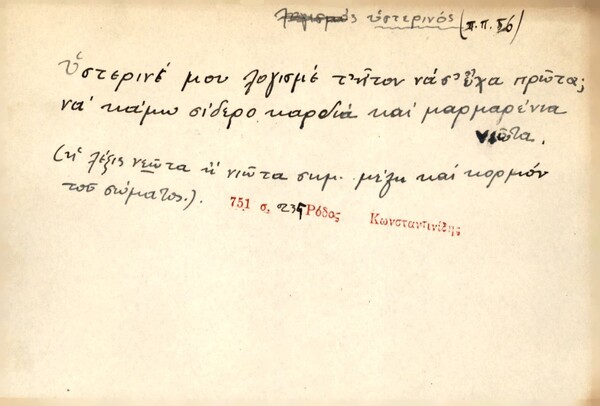 ὑστερινός (π.π. 56)
Ὑστερινέ μου λογισμέ τ' ἦτον νά σ' εἶχα πρῶτα;
νά κάμω σίδερο καρδιά καί μαρμαρένια
νιῶτα.
(ἡ λέξις νεῶτα ἤ νιῶτα σημ. μέλη καί κορμόν
τοῦ σώματος.). 751 σ. 235 Ρόδος Κωνσταντινίδης